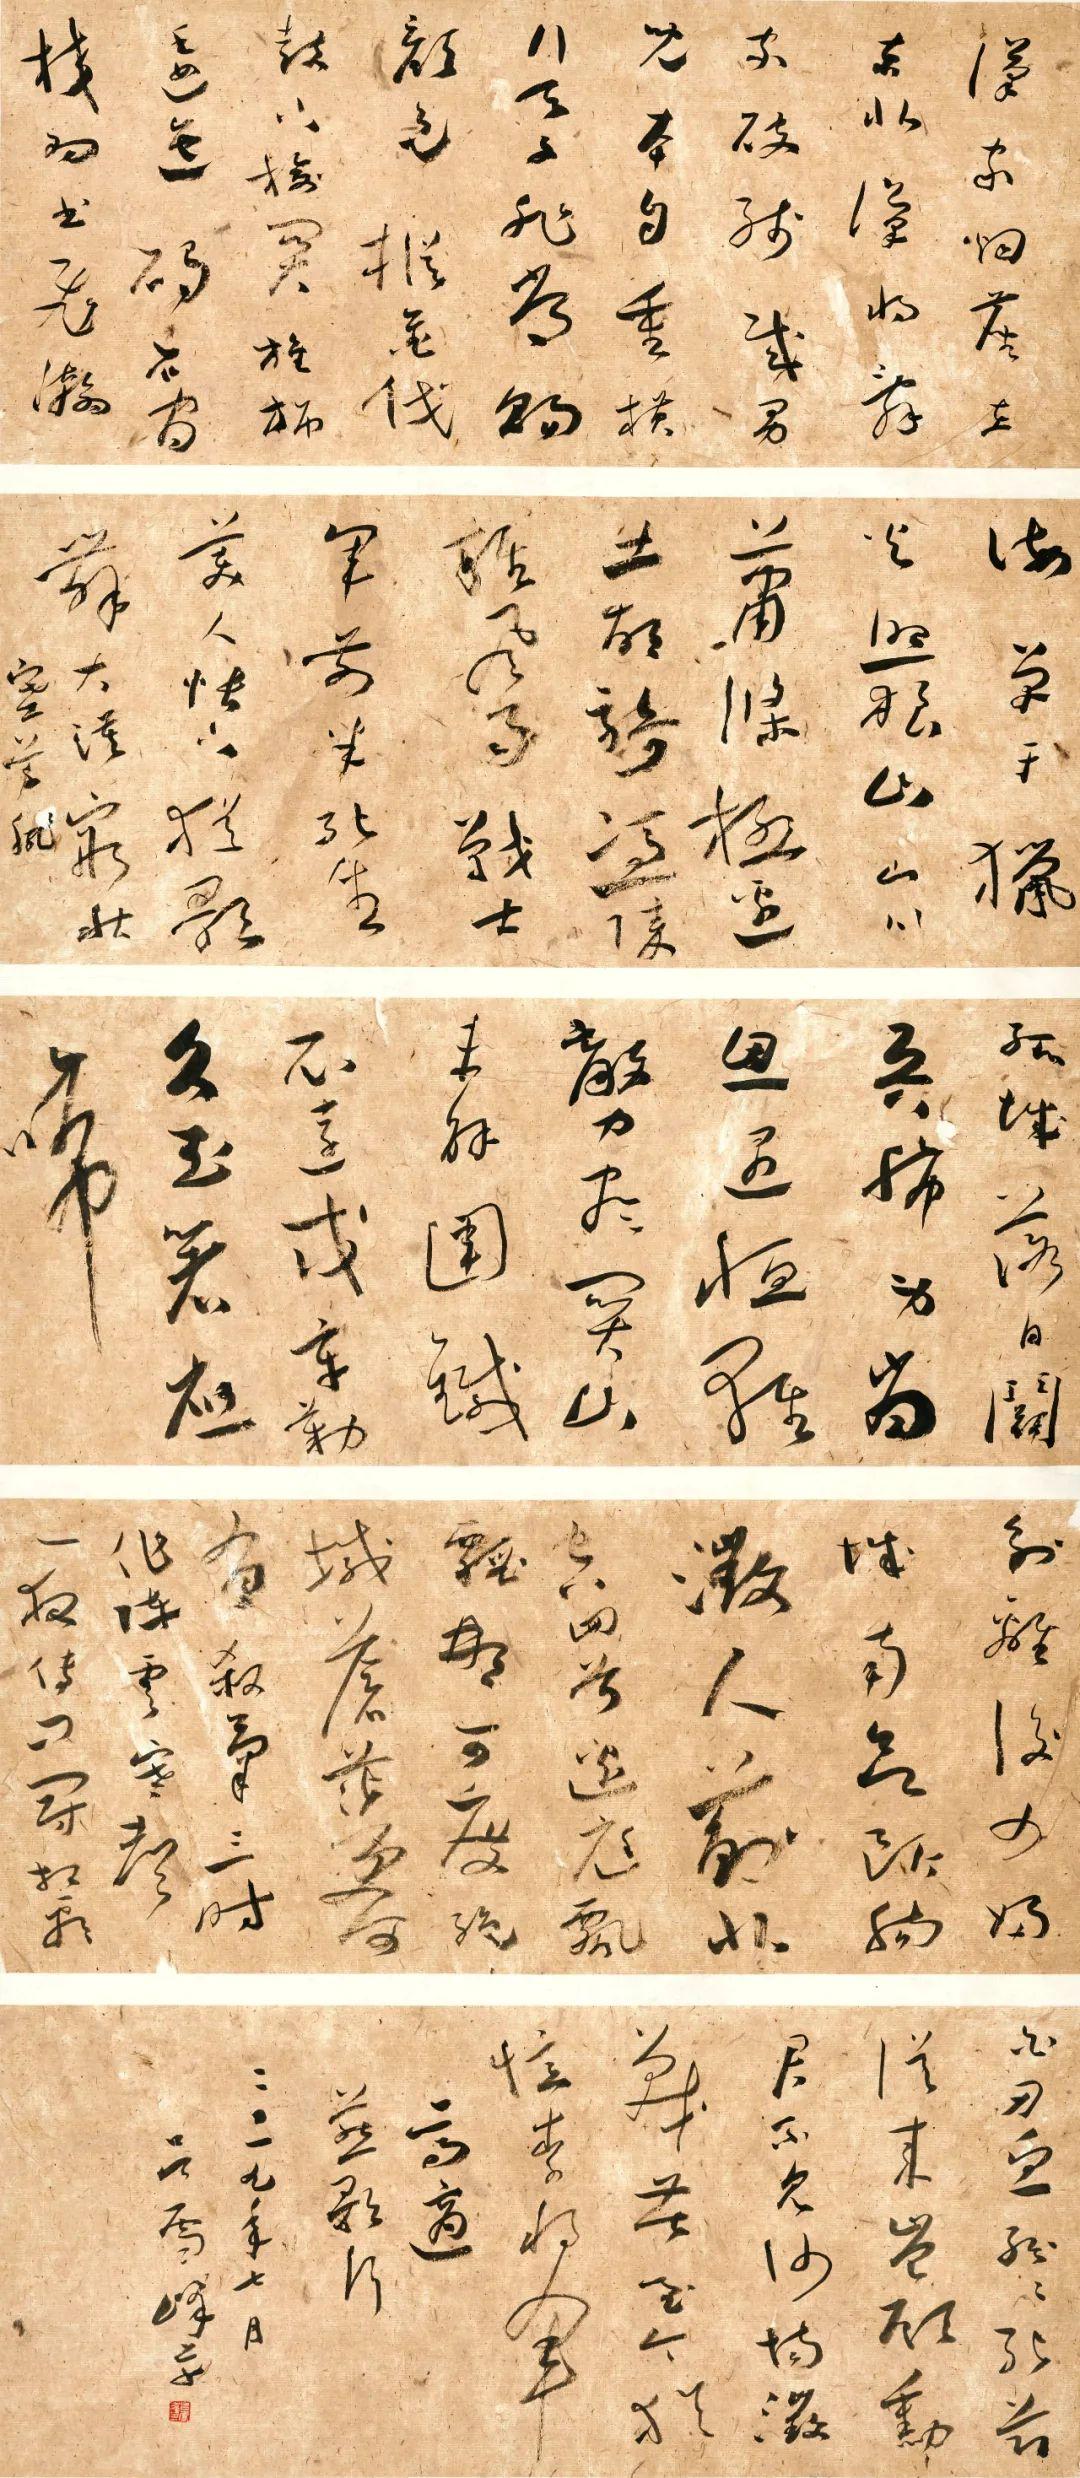 漢家烟塵在
東北漢將辭
家破殘賊男
兒本自重橫
行天子非常賜
顏色摐金伐
鼓下榆關旌旆
逶迤碣石間
校羽書飛瀚
海單于獵
火照狼山山川
蕭條極邊
土胡騎憑陵
雜風雨戰士
軍前半死生
美人帳下猶歌
舞大漠窮秋
塞草腓
孤城落日鬭
兵稀身當
恩遇恒輕
敵力盡關山
未解圍鐵
衣遠戍辛勤
久玉箸應
啼
別離後少婦
城南欲斷腸
徵人薊北
空回首邊庭飄
飄那可度絕
域蒼茫更何
有殺氣三時
作陣雲寒聲
一夜傳刁斗相看
白刃血紛〻死節
從來豈顧勳
君不見沙場徵
戰苦至今猶
憶李將軍
高適
燕歌行
二〇一九年七月
雪峰書